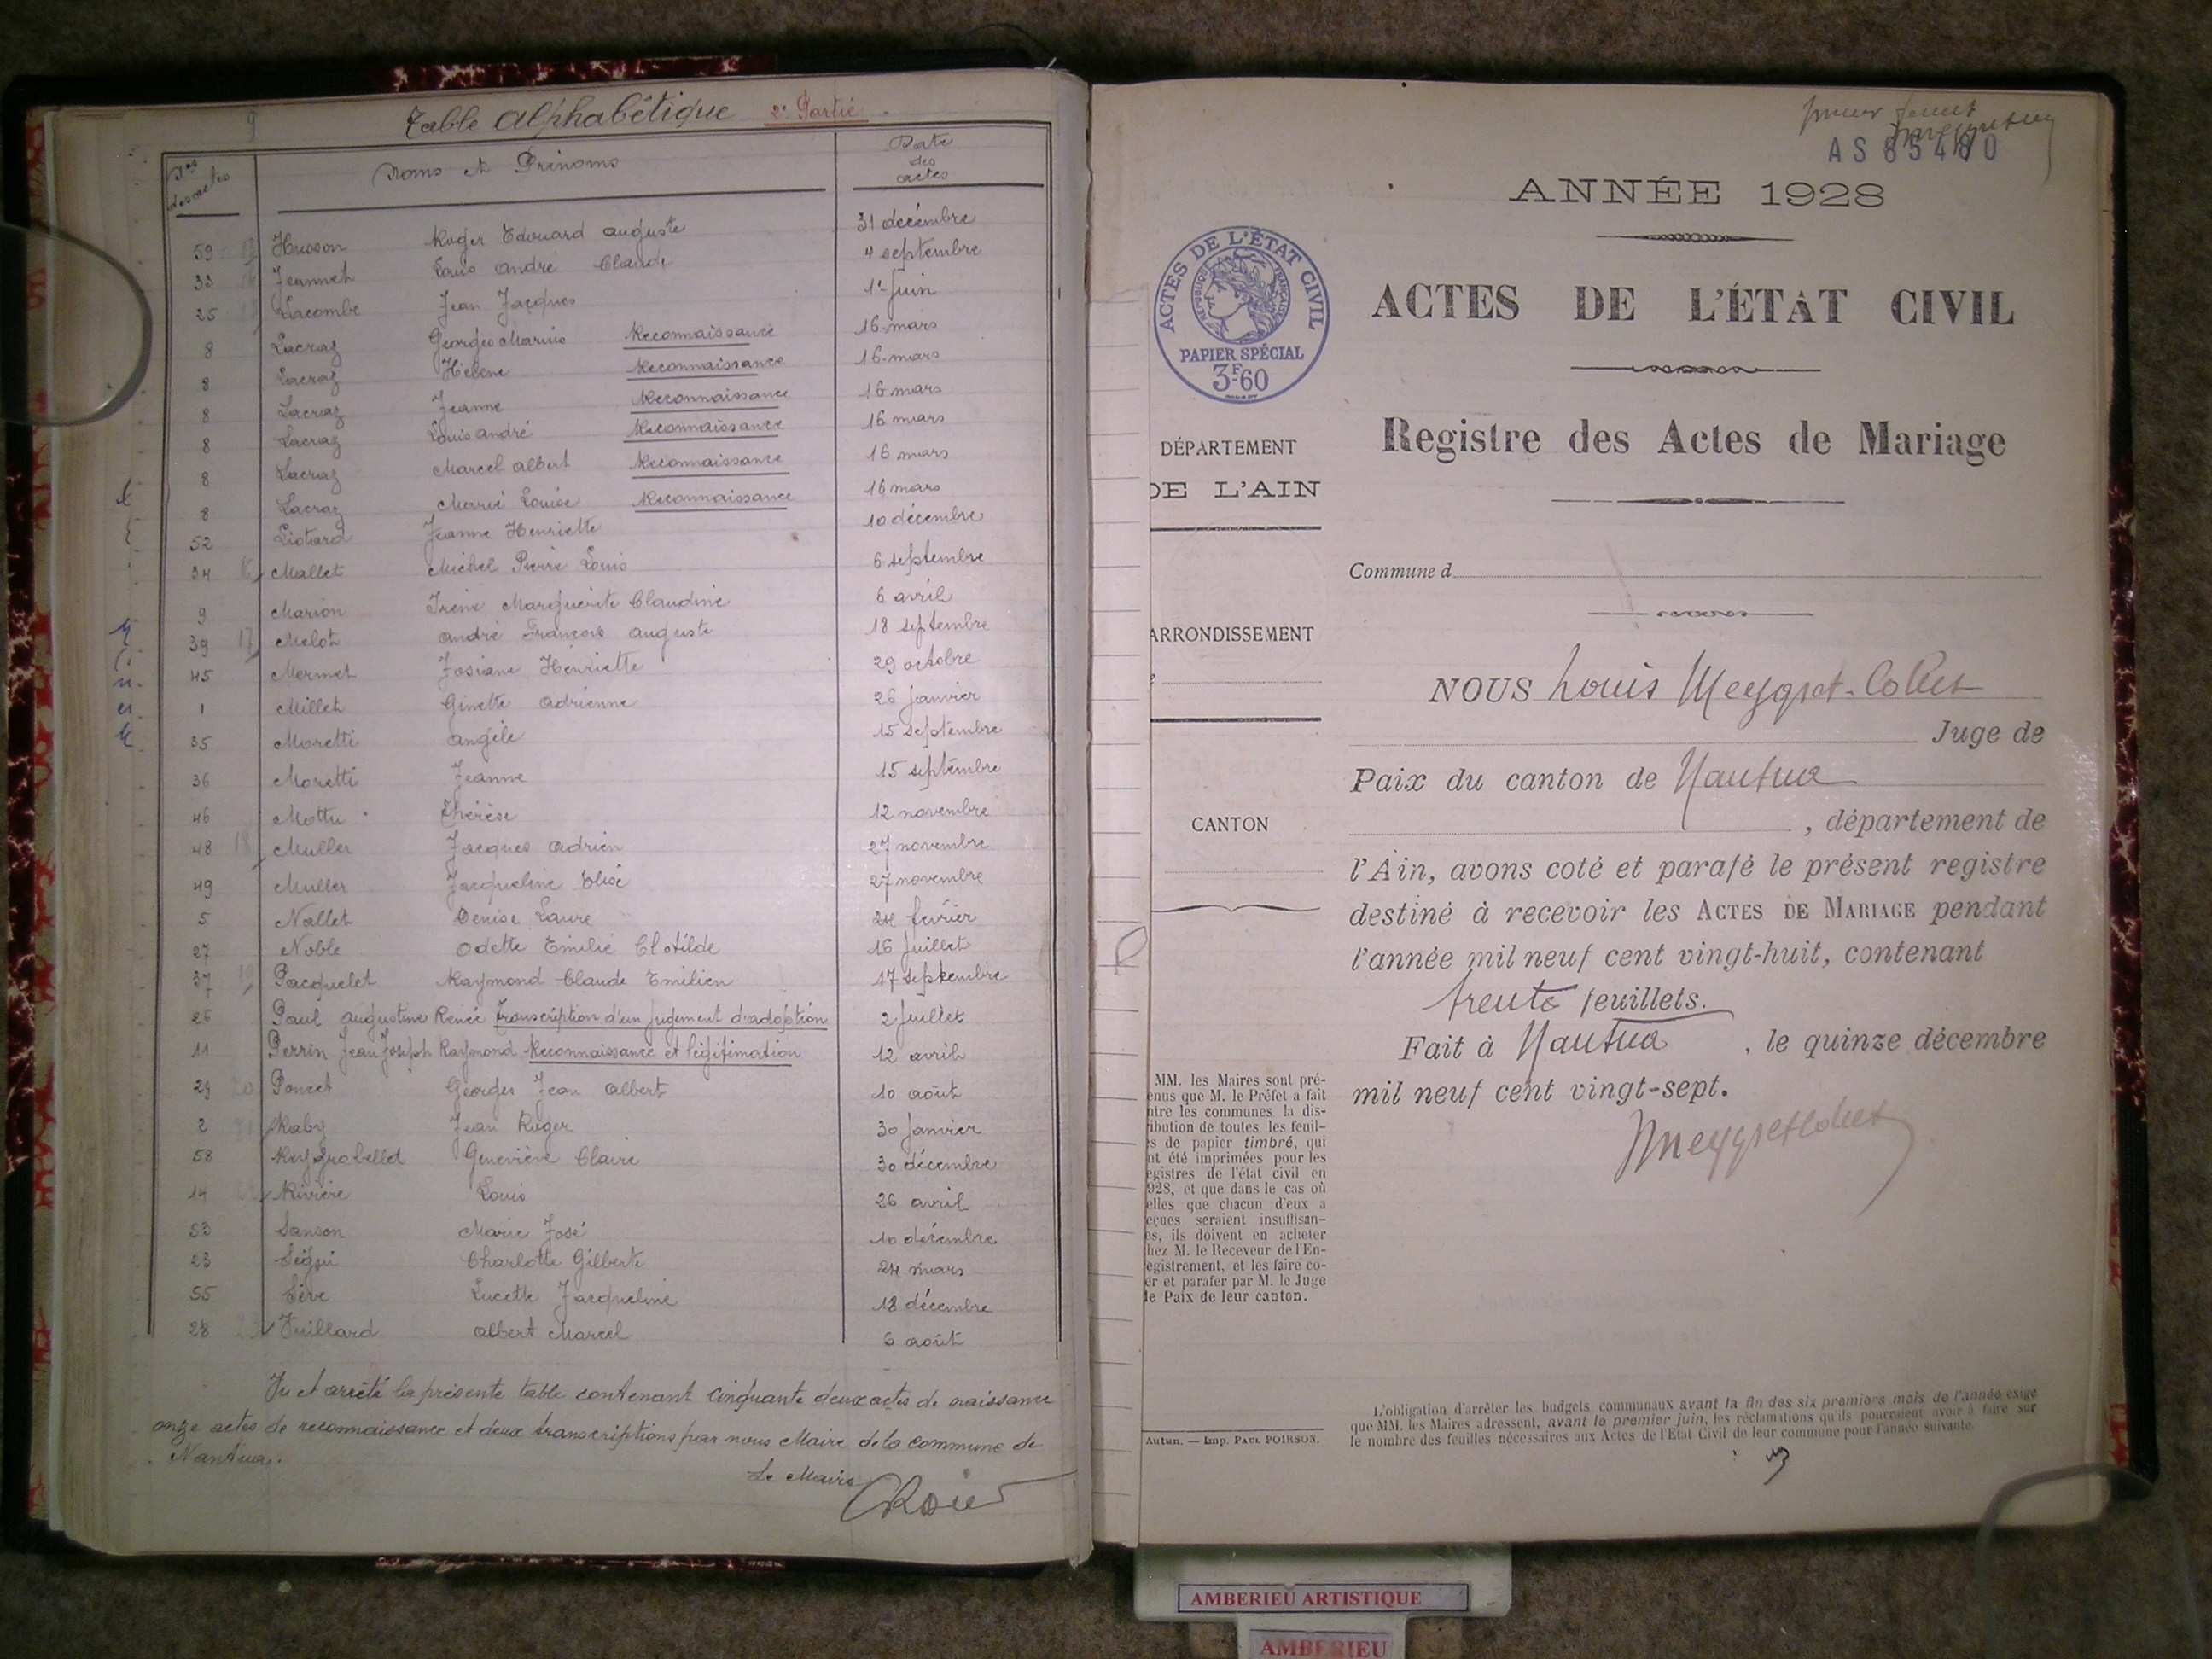 Table alphabétique 2e Partie
Nos des actes Noms et Prénoms Date des actes
59 Husson Roger Edouard auguste 31 décembre
33 Jeannet Louis andré Claude 4 septembre
25 Lacombe Jean Jacques 1er Juin
8 Lacraz Georges Marius Reconnaissance 16 mars
8 Lacraz Hélène Reconnaissance 16 mars
8 Lacraz Jeanne Reconnaissance 16 mars
8 Lacraz Louis andré Reconnaissance 16 mars
8 Lacraz Marcel albert Reconnaissance 16 mars
8 Lacraz Marie Louise Reconnaissance 16 mars
52 Liotard Jeanne Henriette 10 décembre
34 Mallet Michel Pierre Louis 6 septembre
9 Marion Irène Marguerite Claudine 6 avril
39 17 Melot andré François auguste 18 septembre
45 Mermet Josiane Henriette 29 octobre
1 Millet Ginette adrienne 26 Janvier
35 Moretti angèle 15 septembre
36 Moretti Jeanne 15 septembre
46 Mottu Thérèse 12 novembre
48 18 Muller Jacques adrien 27 novembre
49 Muller Jacqueline Elise 27 novembre
5 Nallet Denise Laure 24 février
27 Noble Odette Emilie Clotilde 16 Juillet
37 19 Pacquelet Raymond Claude Emilien 17 septembre
26 Paul augustine Renée Transcription d'un jugement d'adoption 2 Juillet
11 Perrin Jean Joseph Raymond Reconnaissance et légitimation 12 avril
29 20 Poncet Georges Jean albert 10 août
2 21 Raby Jean Roger 30 Janvier
58 Reygrobellet Geneviève Claire 30 décembre
14 22 Rivière Louis 26 avril
53 Sanson Marie José 10 décembre
23 Ségui Charlotte Gilberte 24 mars
55 Sève Lucette Jacqueline 18 décembre
28 23 Vuillard albert Marcel 6 août
Vu et arrêté la présente table contenant cinquante deux actes de naissance
onze actes de reconnaissance et deux transcriptions par nous Maire de la commune de
Nantua.
Le Maire
AS 85480
ANNÉE 1928
ACTES DE L'ÉTAT CIVIL
RÉPUBLIQUE FRANÇAISE
PAPIER SPÉCIAL
3F.60
ACTES DE L'ÉTAT CIVIL
Registre des Actes de Mariage
DÉPARTEMENT
DE L'AIN
Commune d
ARRONDISSEMENT
CANTON
NOUS Louis Meygret-Collet
Juge de
Paix du canton de Nantua
, département de
l'Ain, avons coté et parafé le présent registre
destiné à recevoir les ACTES DE MARIAGE pendant
l'année mil neuf cent vingt-huit, contenant
trente feuillets.
Fait à Nantua , le quinze décembre
mil neuf cent vingt-sept.
Meygretcollet
MM. les Maires sont pré-
enus que M. le Préfet a fait
ntre les communes la dis-
ribution de toutes les feuil-
s de papier timbré, qui
nt été imprimées pour les
egistres de l'état civil en
928, et que dans le cas où
elles que chacun d'eux a
eçues seraient insuffisan-
es, ils doivent en acheter
hez M. le Receveur de l'En-
egistrement, et les faire co-
er et parafer par M. le Juge
e Paix de leur canton.
Autun. — Imp. PAUL POIRSON.
L'obligation d'arrêter les budgets communaux avant la fin des six premiers mois de l'année exige
que MM. les Maires adressent, avant le premier juin, les réclamations qu'ils pourraient avoir à faire sur
le nombre des feuilles nécessaires aux Actes de l'Etat Civil de leur commune pour l'année suivante.
AMBERIEU ARTISTIQUE
AMBERIEU